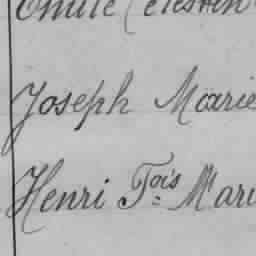 Emile Célestin
Joseph Marie
Henri Fois Mari